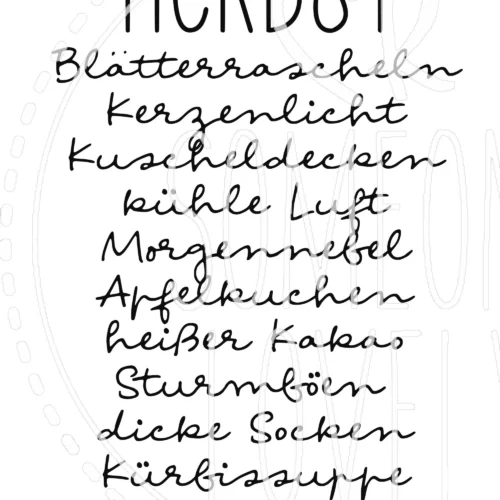 HERBST
Blätterrascheln
Kerzenlicht
Kuscheldecken
kühle Luft
Morgennebel
Apfelkuchen
heißer Kakao
Sturmböen
dicke Socken
Kürbissuppe